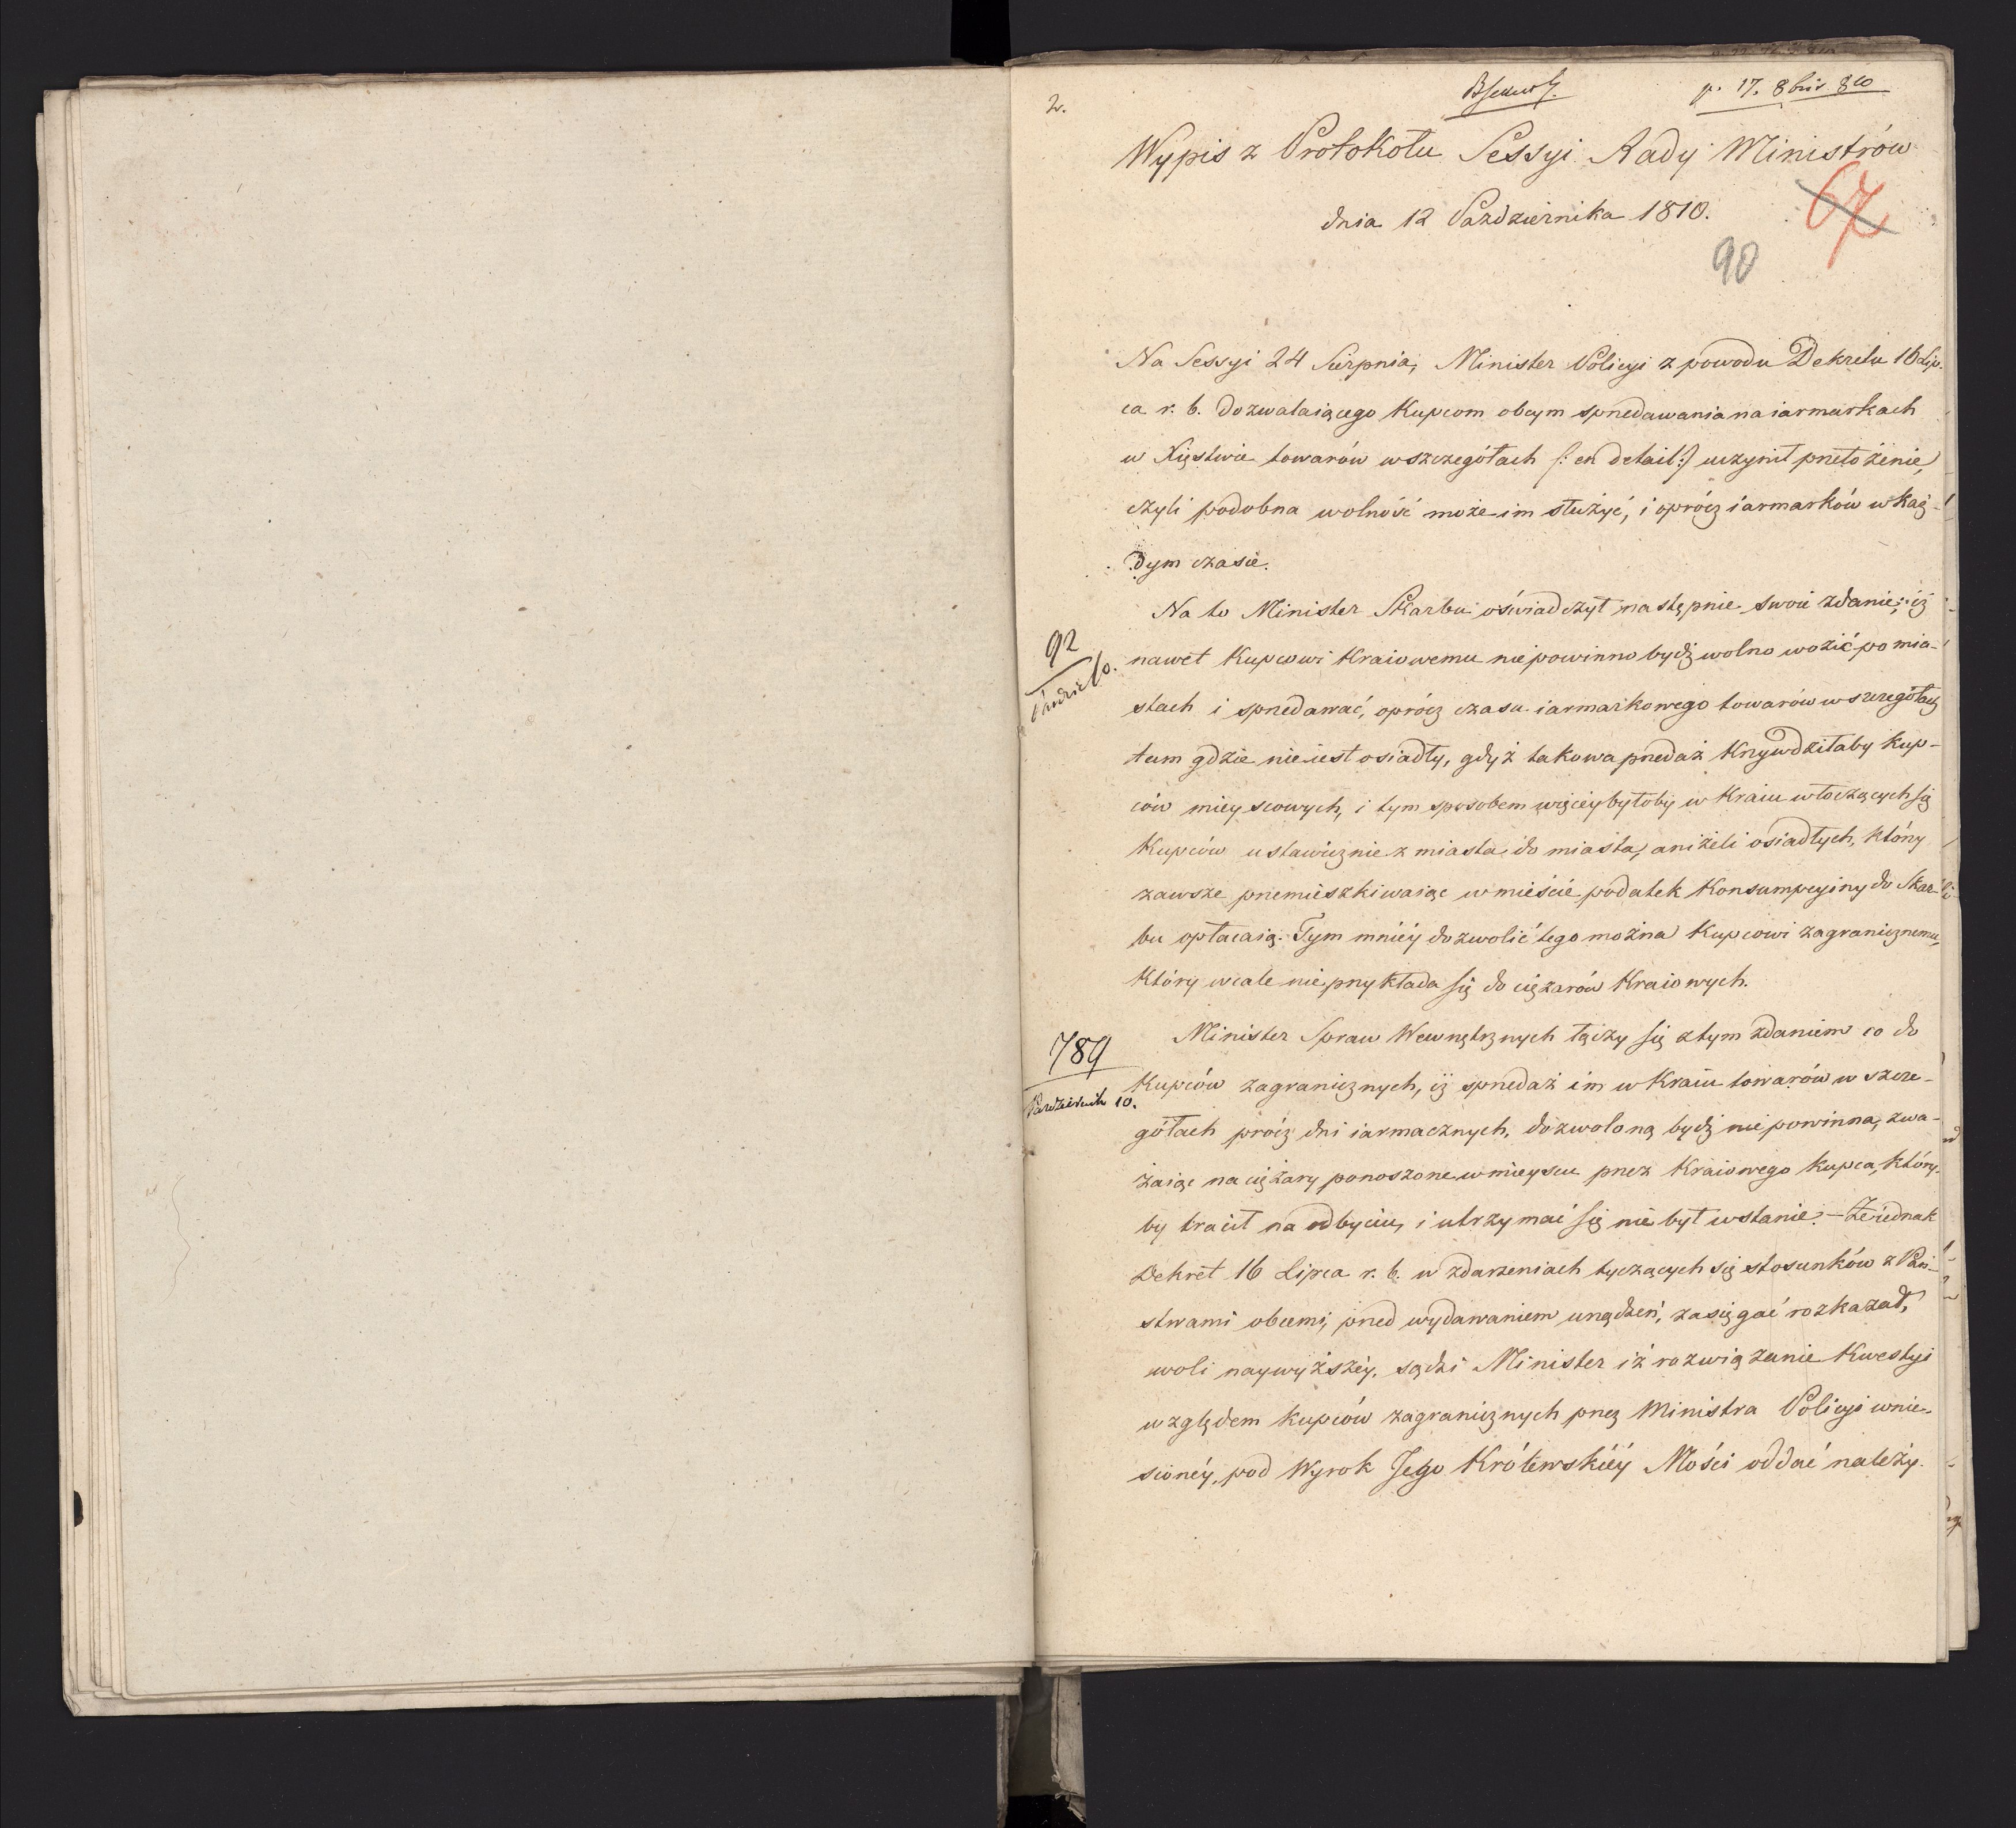 2.
p. 17. 8bris 810
Wypis z Protokołu Sessyi Rady Ministrów
dnia 12 Pazdziernika 1810.
67
90
Na Sessyi 24 Sierpnia, Minister Policyi z powodu Dekretu 16 Lip-
ca r. b. dozwalaiącego Kupcom obcym sprzedawania na iarmarkach
w Xięstwie towarów w szczegółach /: en detail :/ uczynił przełożenie,
czyli podobna wolność może im służyć, i oprócz iarmarków w każ-
dym czasie.
Na to Minister Skarbu oświadczył następnie swoie zdanie; iż
92
10.
nawet Kupcowi Kraiowemu nie powinno bydź wolno wozić po mia-
stach i sprzedawać, oprócz czasu iarmarkowego towarów w szczegółach
tam gdzie nie iest osiadły, gdyż takowa przedaż Krzywdziłaby Kup-
ców mieyscowych, i tym sposobem więcéy byłoby w Kraiu włoczących się
Kupców ustawicznie z miasta do miasta, aniżeli osiadłych, którzy
zawsze przemieszkiwaiąc w mieście podatek Konsumpcyiny do Skar-
bu opłacaią. Tym mniéy dozwolić tego można Kupcowi zagranicznemu,
Który wcale nie przykłada się do ciężarów Kraiowych.
Minister Spraw Wewnętrznych łączy się z tym zdaniem co do
789
Pazdziernik 10.
Kupców zagranicznych, iż sprzedaż im w Kraiu towarów w szcze-
gółach prócz dni iarmacznych, dozwoloną bydź nie powinna, zwa-
żaiąc na ciężary ponoszone w mieyscu przez Kraiowego Kupca, który-
by tracił na odbyciu, i utrzymać się nie był w stanie. – Że iednak
Dekret 16 Lipca r. b. w zdarzeniach tyczących się stosunków z Pań-
stwami obcemi, przed wydawaniem urządzeń, zasięgać rozkazał,
woli naywyższéy, sądzi Minister iż rozwiązanie Kwestyi
względem Kupców zagranicznych przez Ministra Policyi wnie-
sionéy, pod Wyrok Jego Królewskiéy Mości oddać należy.